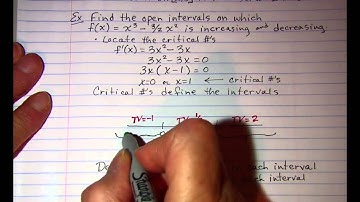 Ex. Find the open intervals on which
f(x) = x³ - 3/2 x² is increasing and decreasing.
• Locate the critical #'s
f'(x) = 3x² - 3x
3x² - 3x = 0
3x(x-1) = 0
x=0 or x=1 ← critical #'s
Critical #'s define the intervals
TV=-1 TV= TV=2
in each interval
interval